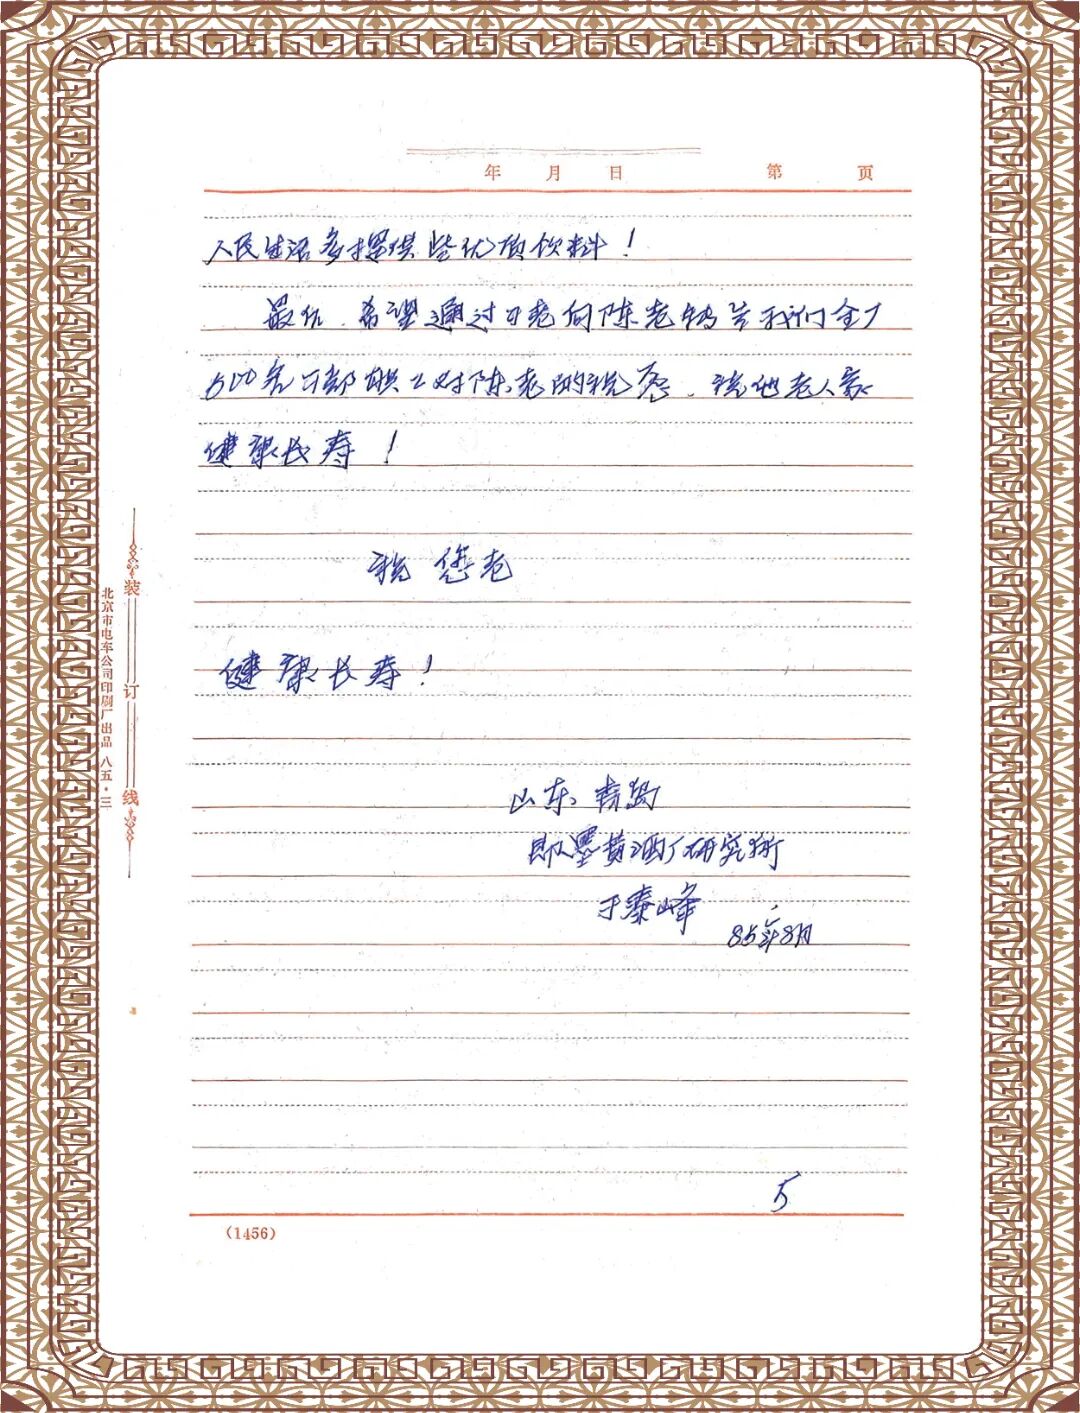 年 月 日 第 页
人民生活多提供些优质饮料！
最后，希望通过于老向陈老转告我们全厂
500名干部职工对陈老的祝愿，祝他老人家
健康长寿！
祝您老
健康长寿！
山东青岛
即墨黄酒厂研究所
于泰峰
85年8月
5
(1456)
装订线
北京市电车公司印刷厂出品 八五·三